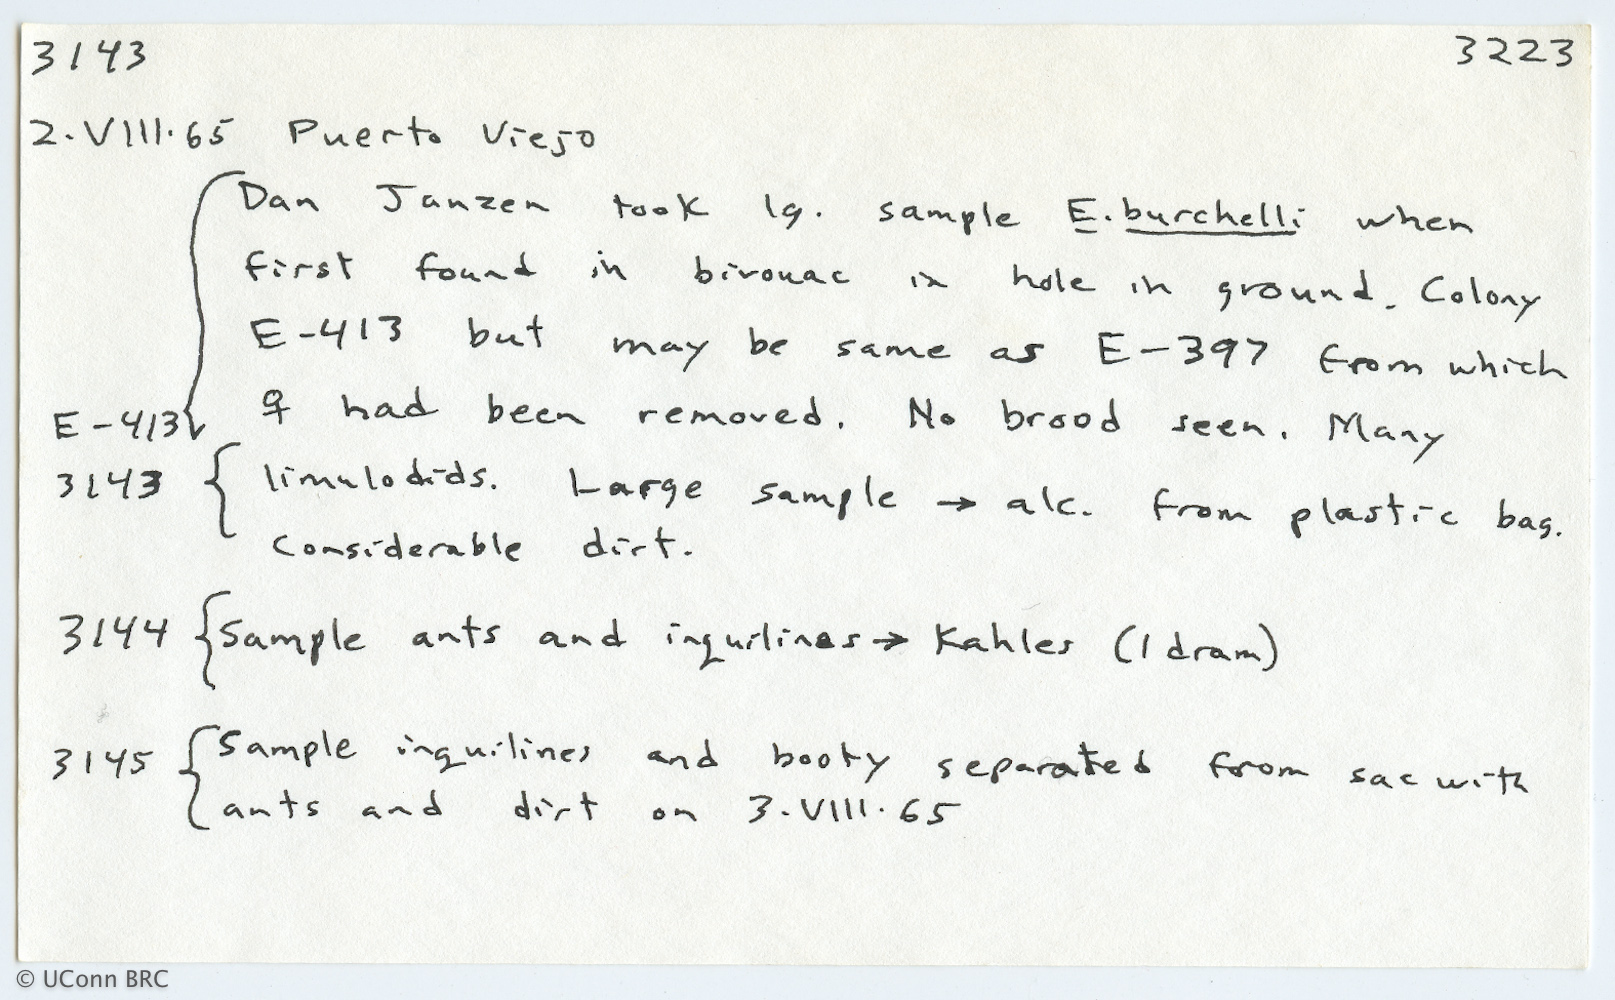 3143 3223
2.VIII.65 Puerto Viejo
Dan Janzen took lg. sample E. burchelli when
first found in bivouac in hole in ground. Colony
E-413 but may be same as E-397 from which
E-413 ♀ had been removed. No brood seen. Many
3143 limulodids. Large sample → alc. from plastic bag.
Considerable dirt.
3144 Sample ants and inquilines → Kahles (1 dram)
3145 Sample inquilines and booty separated from sac with
ants and dirt on 3.VIII.65
© UConn BRC